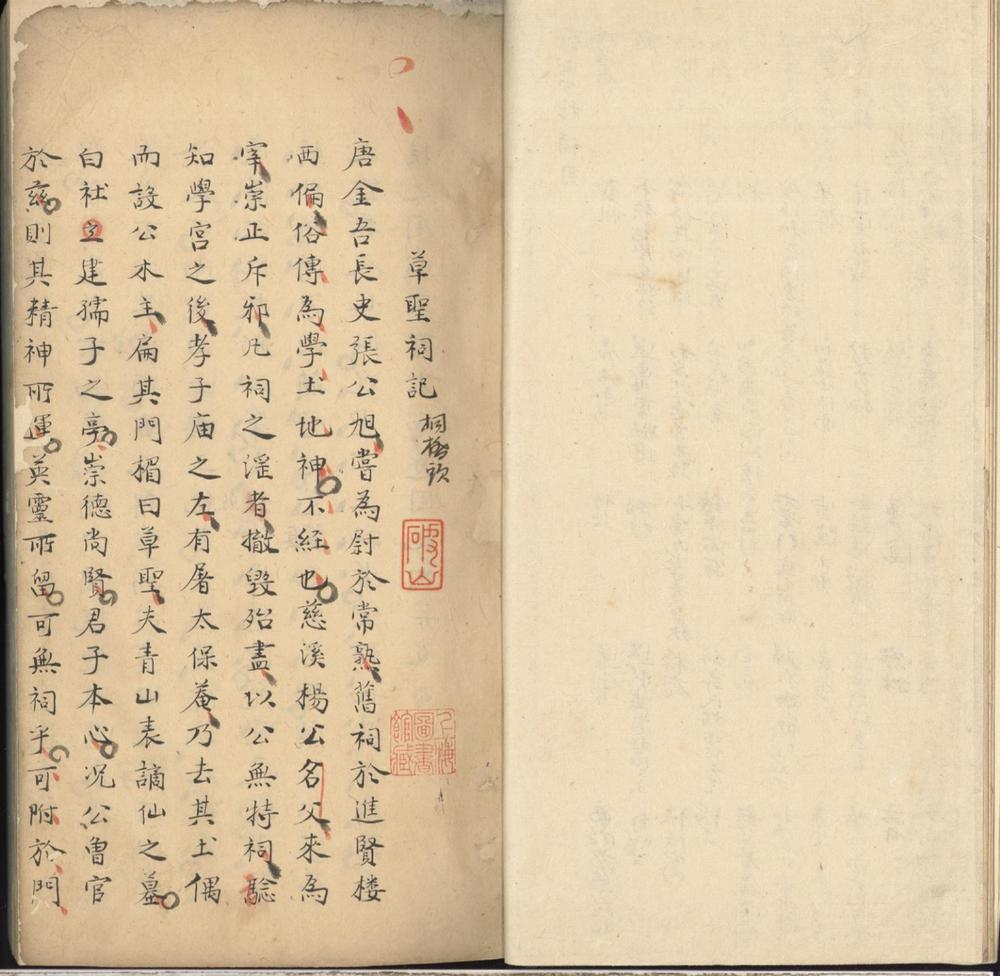 草聖祠記
破山
上海圖書館藏
唐金吾長史張公旭嘗為尉於常熟舊祠於進賢楼
西偏俗傳為學土地神不經也慈溪楊公名父來為
宰崇正斥邪凡祠之滛者撤毀殆盡以公無特祠騐
知學宮之後孝子庙之左有屠太保菴乃去其土偶
而設公木主扁其門楣曰草聖夫青山表謫仙之墓
白社立建孺子之亭崇德尚賢君子本心况公曾官
於兹則其精神所運英靈所留可無祠乎可附於門